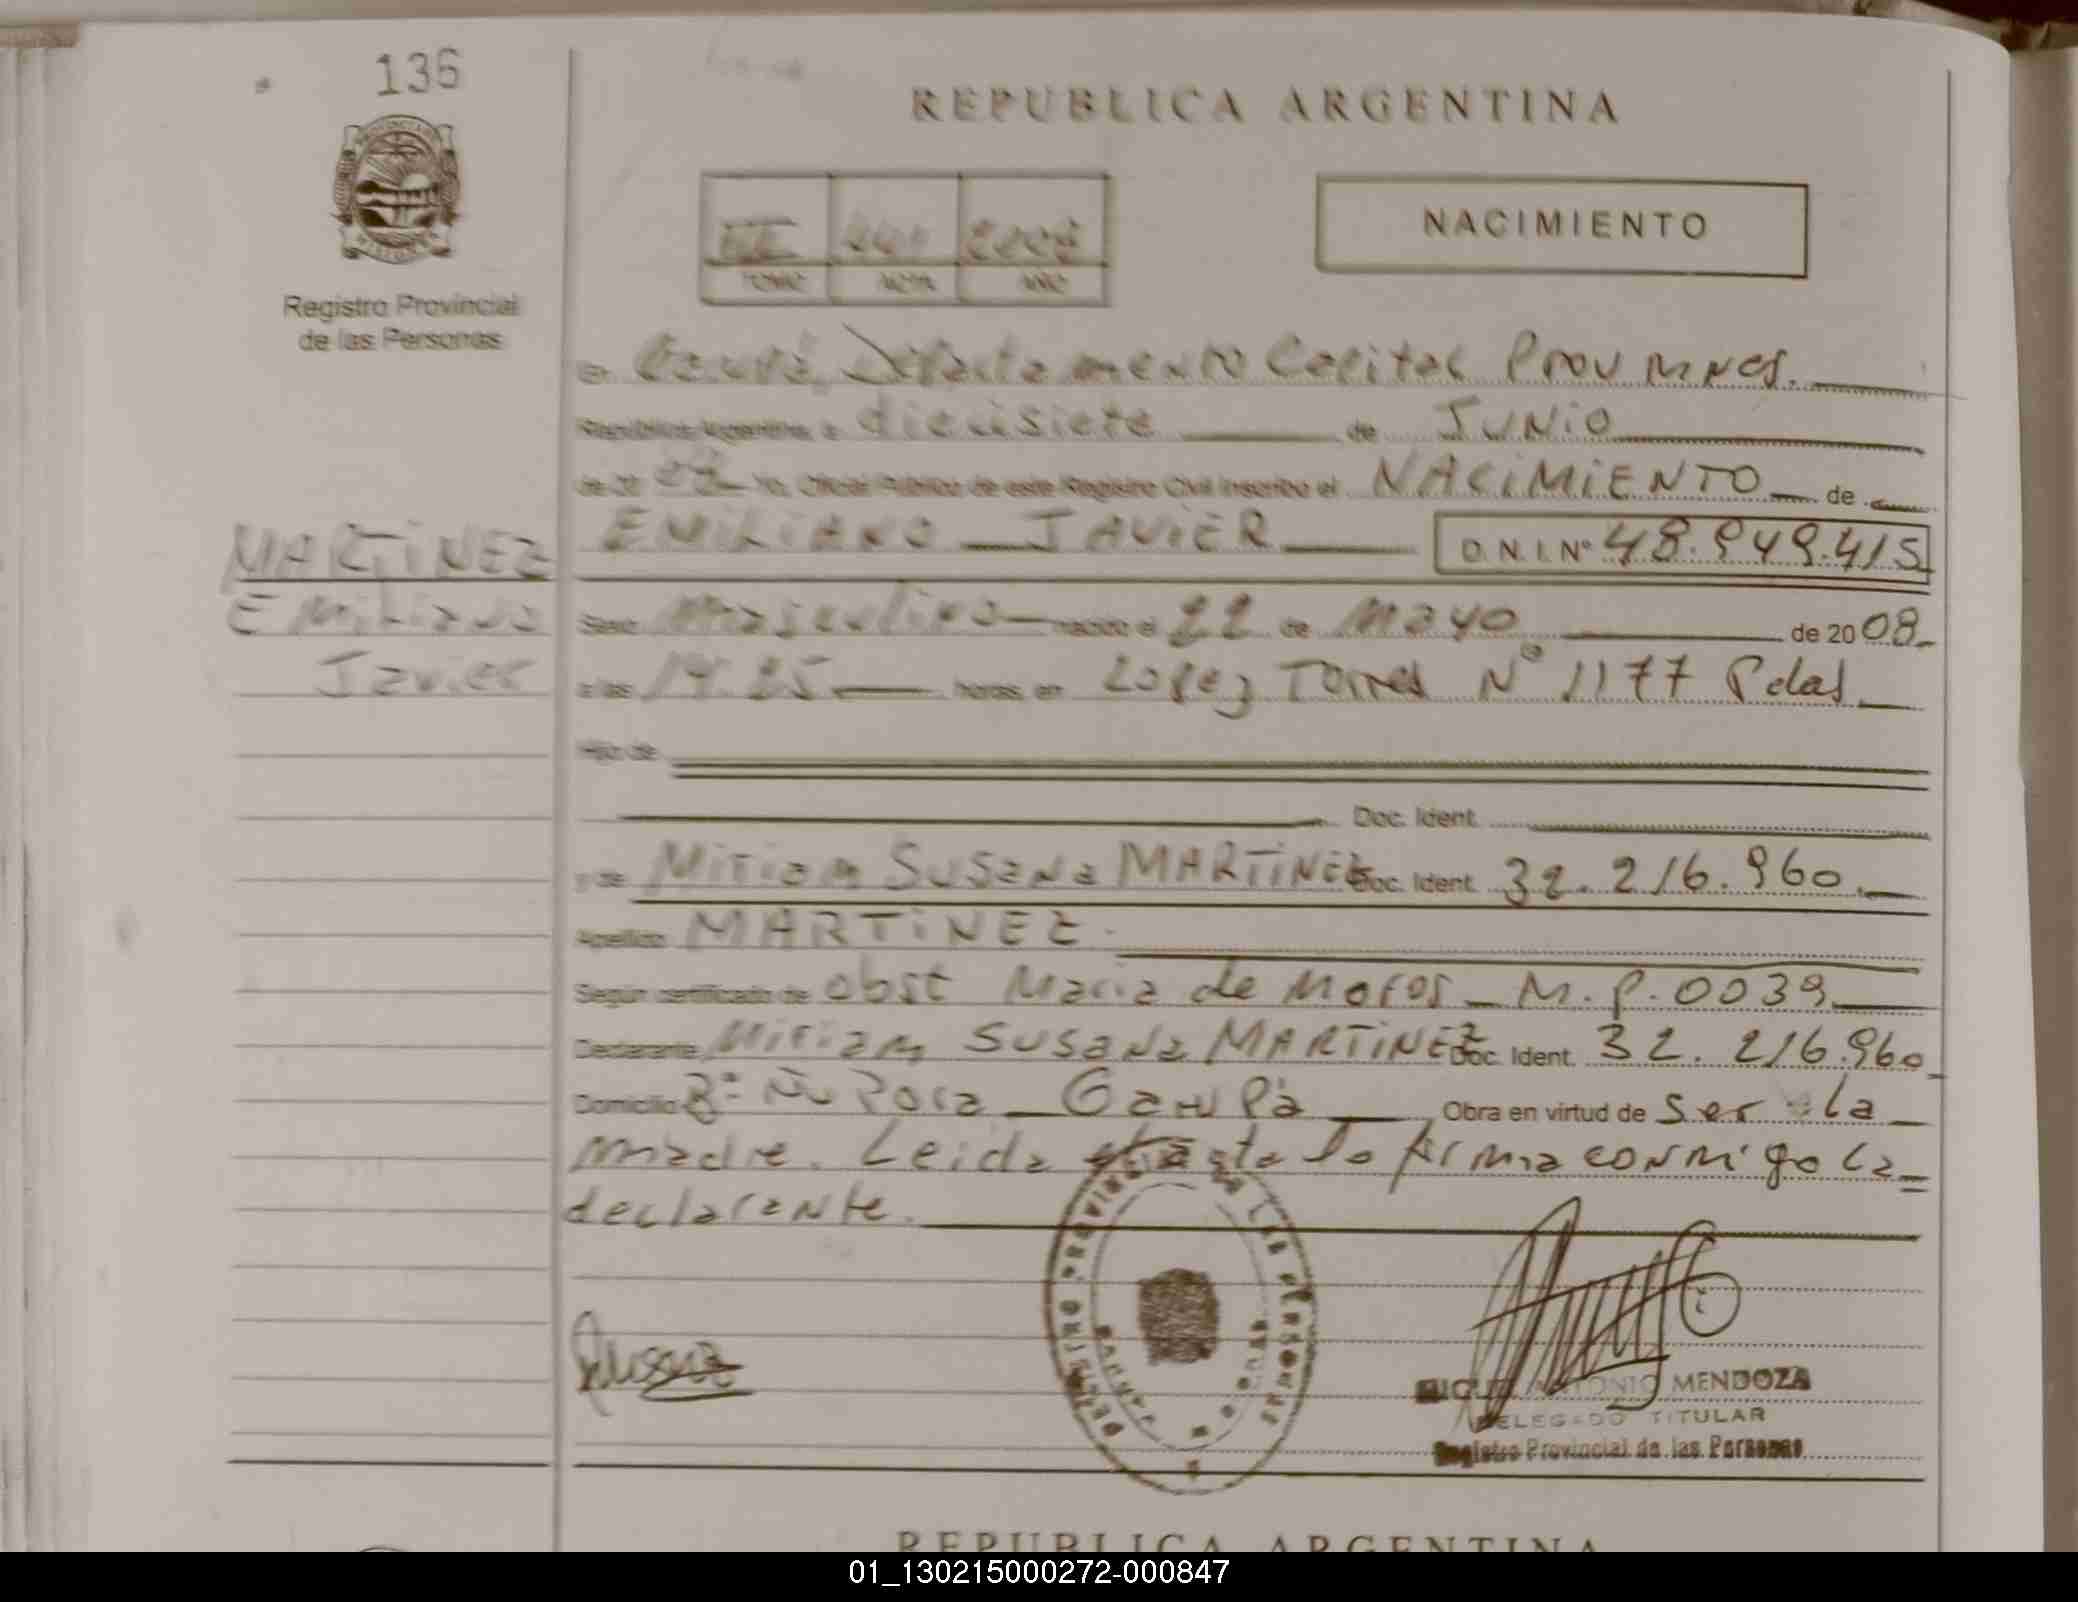 136
REPUBLICA ARGENTINA
NACIMIENTO
TOMO ACTA AÑO
III 2008
Registro Provincial
de las Personas
En Garupá, Departamento Capital Prov Mnes.
República Argentina, a diecisiete de JUNIO
de 20 08 Yo, Oficial Público de este Registro Civil inscribo el NACIMIENTO de
EMILIANO JAVIER D.N.I. Nº 48.949.415
MARTINEZ
Emiliano
Javier
Sexo Masculino nacido el 22 de Mayo de 20 08
a las 14:25 horas, en Lopez Torres Nº 1177 Pdas
Hijo de
Doc. Ident.
y de Miriam Susana MARTINEZ Doc. Ident. 32.216.960.
Apellido MARTINEZ
Según certificado de obst Maria de Moros M.P. 0039
Declarante Miriam Susana MARTINEZ Doc. Ident. 32.216.960
Domicilio Bº Ñu Pora Garupá Obra en virtud de ser la
madre. Leida el acta la firma conmigo la
declarante.
REGISTRO PROVINCIAL DE LAS PERSONAS
MIGUEL ANTONIO MENDOZA
DELEGADO TITULAR
Registro Provincial de las Personas
REPUBLICA ARGENTINA
01_130215000272-000847